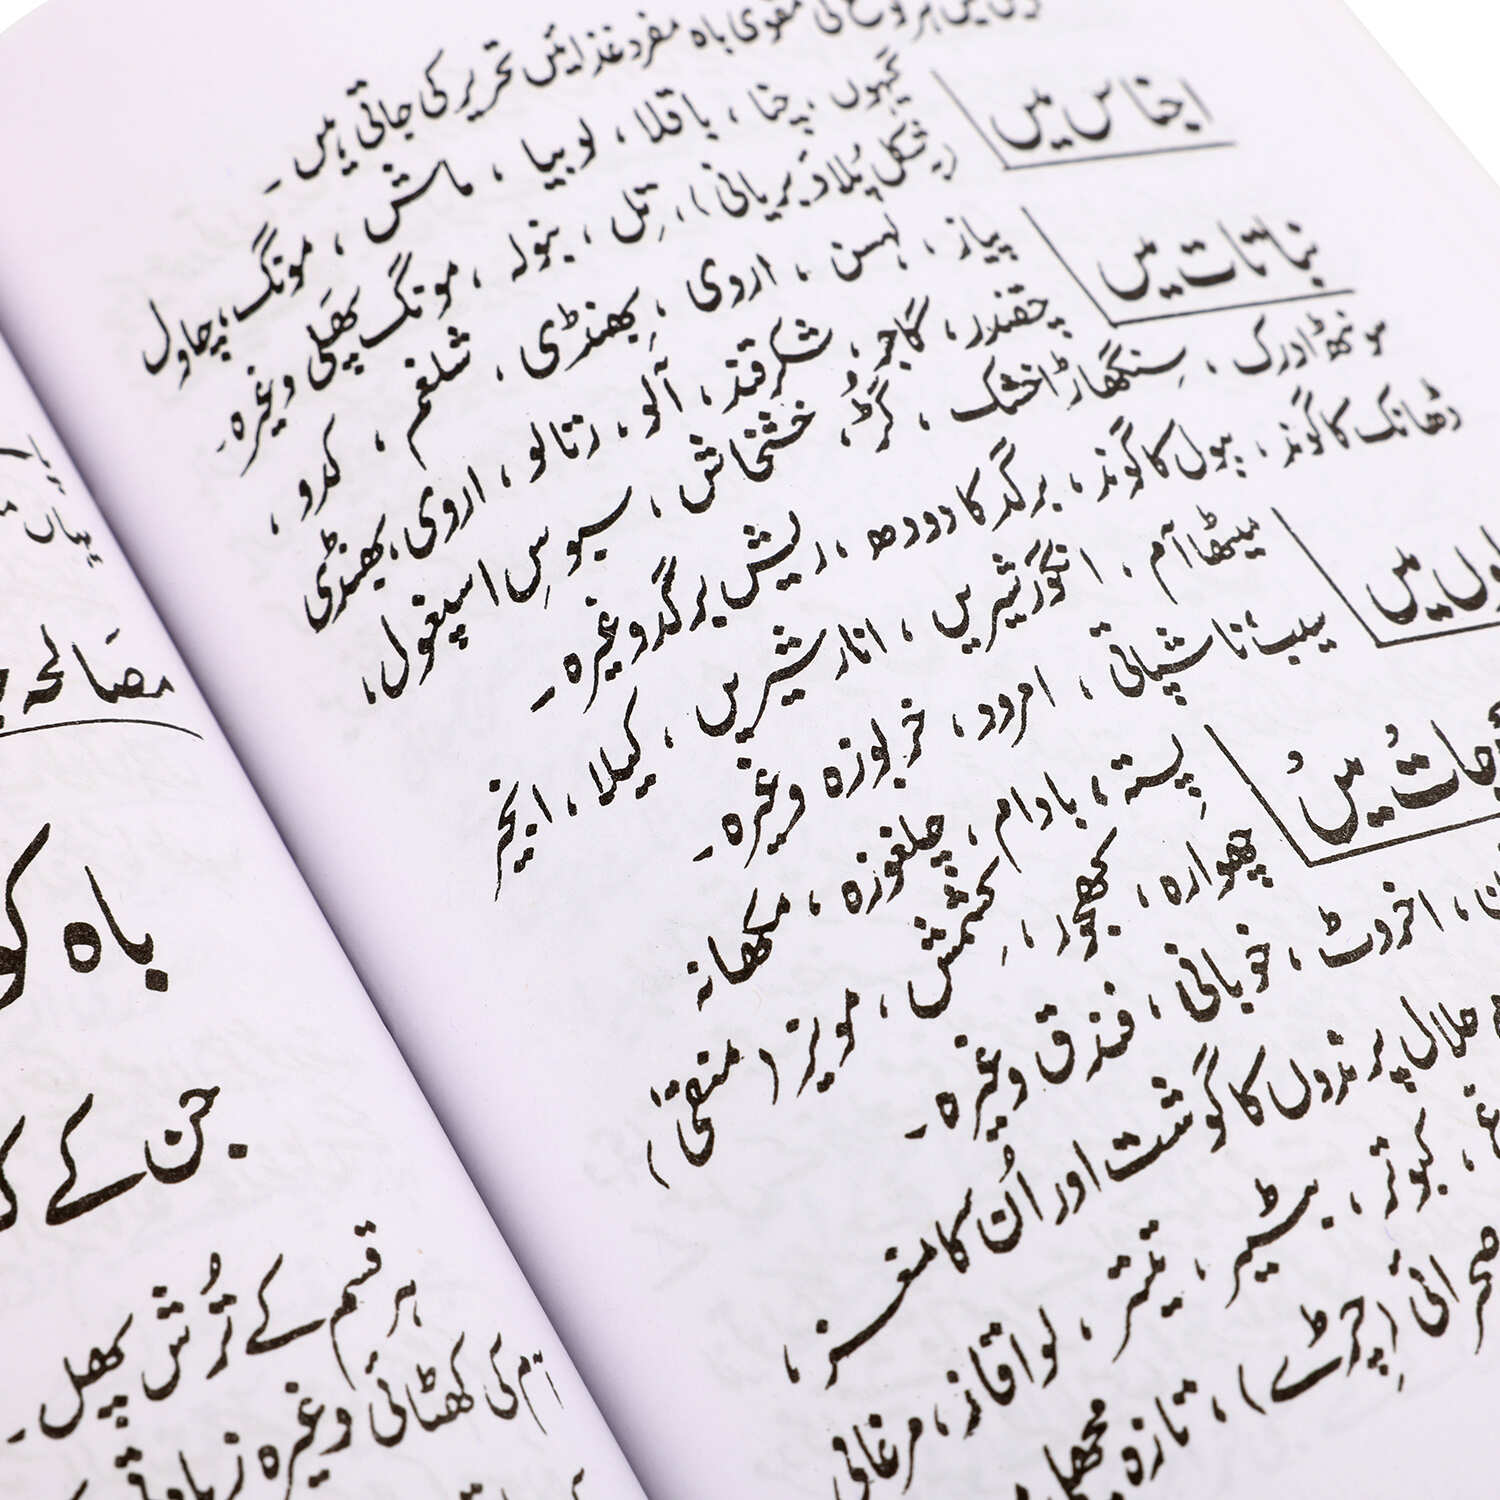 مقوی باہ مفرد غذائیں تحریر کی جاتی ہیں۔
اجناس میں
گیہوں، چنا، باقلا، لوبیا، ماش، مونگ، چاول
(بشکل پلاؤ بریانی)، تِل، بنولہ، مونگ پھَلی وغیرہ۔
نباتات میں
پیاز، لہسن، اروی، بھِنڈی، شلغم، کدو،
چقندر، گاجر، شکرقند، آلو، رتالو، اروی، بھِنڈی
سونٹھ ادرک، سِنگھاڑا خشک، گُڑ، خشخاش، سبوسِ اسپغول،
ڈھانک کا گوند، ببول کا گوند، برگد کا دودھ، ریش برگد وغیرہ۔
میں
میٹھا آم، انگور شیریں، انار شیریں، کیلا، انجیر
سیب، ناشپاتی، امرود، خربوزہ وغیرہ۔
میں
پِستہ، بادام، چلغوزہ، مکھانہ
چھوارہ، کھجور، کِشمش، مویز (منقیٰ)
اخروٹ، خوبانی، فندق وغیرہ۔
حلال پرندوں کا گوشت اور اُن کا مغز،
کبوتر، بٹیر، تیتر، لوا، قاز، مرغابی
صحرائی (چِڑے)، تازہ مچھلی
مصَالحہ
باہ کو
جن کے
ہر قسم کے تُرش پھل۔
آم کی کھٹائی وغیرہ